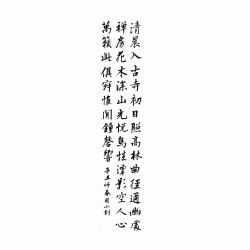 清晨入古寺初日照高林曲徑通幽處
禪房花木深山光悅鳥性潭影空人心
萬籟此俱寂惟聞鐘磬響